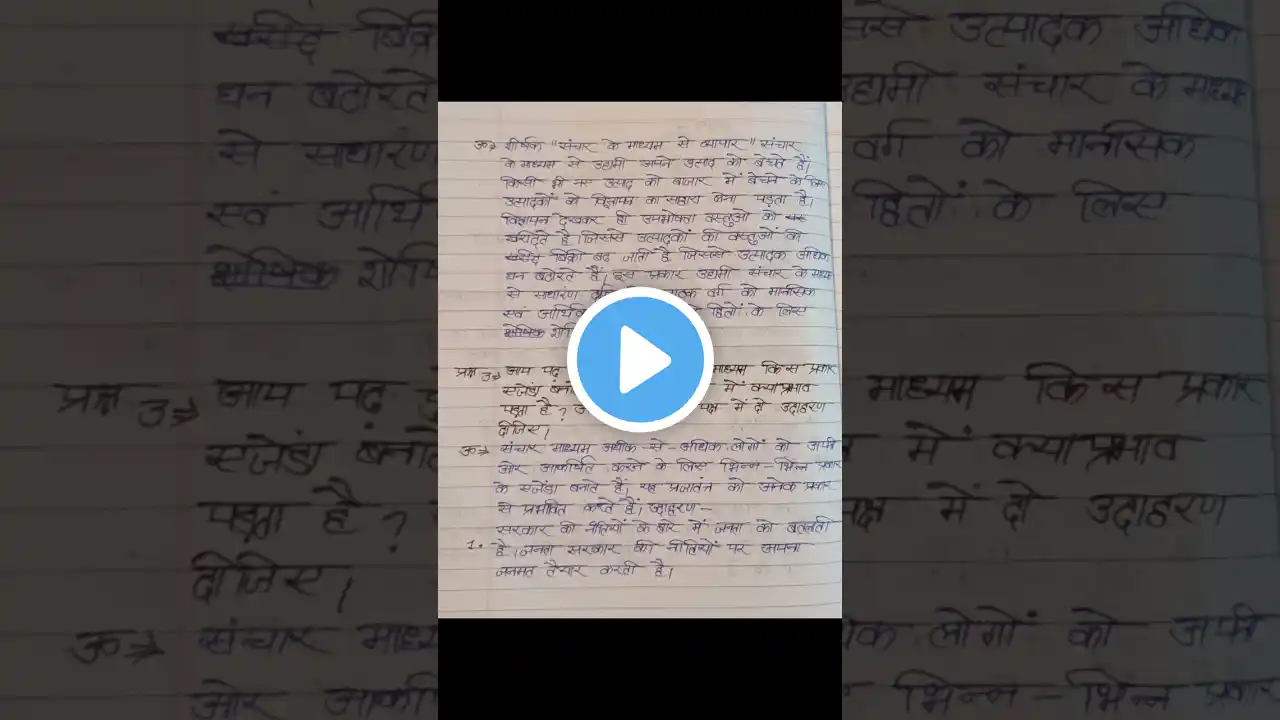 उ⇒ शीर्षक "संचार के माध्यम से व्यापार" संचार
के माध्यम से उद्यमी अपने उत्पाद को बेचते हैं।
किसी भी नए उत्पाद को बाजार में बेचने के लिए
उत्पादकों को विज्ञापन का सहारा लेना पड़ता है।
विज्ञापन देखकर ही उपभोक्ता वस्तुओं को
खरीदते है। जिससे उत्पादकों की वस्तुओं की
बिक्री बढ़ जाती है जिससे उत्पादक अधिक
धन बटोरते हैं। इस प्रकार उद्यमी संचार के माध्यम
से साधारण वर्ग को मानसिक
एवं हितों के लिए
प्रश्न 3⇒ आप पढ़ माध्यम किस प्रकार
एजेंडा में क्या प्रभाव
पड़ता है? पक्ष में दो उदाहरण
दीजिए।
उ⇒ संचार माध्यम अधिक-से-अधिक लोगों को अपनी
ओर आकर्षित करने के लिए भिन्न-भिन्न प्रकार
के एजेंडा बनाते हैं। यह प्रजातंत्र को अनेक प्रकार
से प्रभावित करते हैं। उदाहरण-
सरकार की नीतियों के बारे में जनता को बतलाती
1. है। जनता सरकार की नीतियों पर अपना
जनमत तैयार करती है।